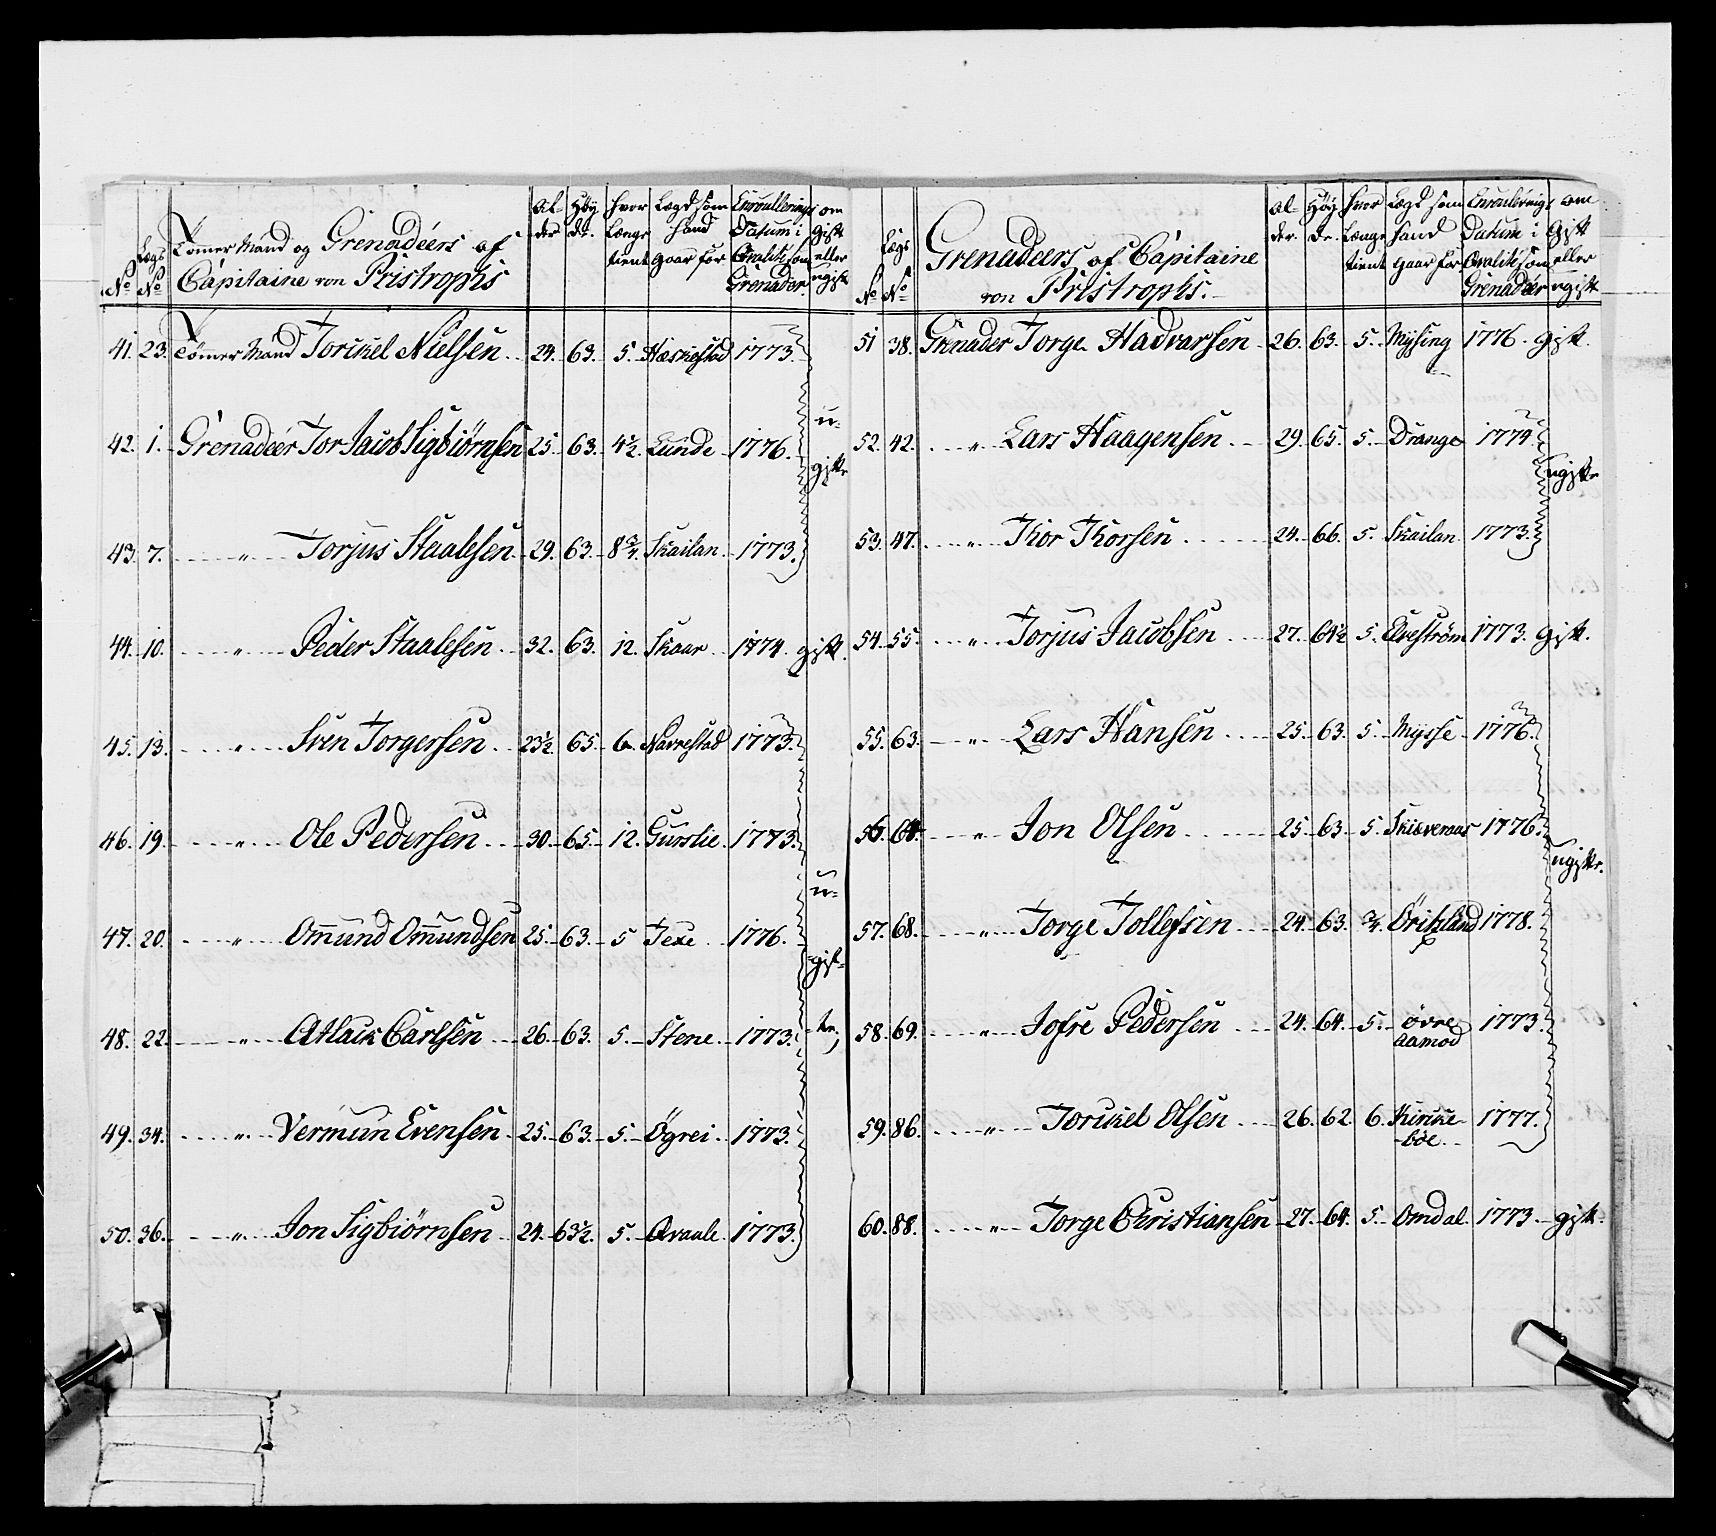 No Lægs No Tømer Mand og Grenadéers af Capitaine von Pristrophs Al- der Høy de. hvor Længe tient Lægd som hand gaar for Enroullerings Datum i Qvalité som Grenader. om gift eller ugift
41. 23. Tømmer Mand Torchel Nielsen 24. 63. 5. Hæskestad 1773.
42. 1. Grenadéer Tor Jacob Sigbiørnsen 25. 63. 4½. Lunde 1776. u-
gifte
43. 7. " Torjus Staalesen 29. 63. 8¾. Skailan 1773.
44. 10. " Peder Staalesen 32. 63. 12. Skaar 1774. gift.
45. 13. " Sven Torgersen 23½. 65. 6. Navrestad 1773.
46. 19. " Ole Pedersen 30. 65. 12. Gurslie 1773.
u-
47. 20. " Omund Omundsen 25. 63. 5 Texe 1776.
-gif-
48. 22. " Atlack Carlsen 26. 63. 5. Stene 1773. -te,
49. 34. " Vermun Evensen 25. 63. 5. Ögrei 1773.
50. 36. " Jon Sigbiörnsen 24. 63½. 5. Qvaale 1773.
No Lægs No Grenadeers af Capitaine von Pristrophs. Al- der. Høy de. hvor Længe tient Lægd som hand gaar for Enroullerings Datum i Qvalité som Grenadéer om Gift eller ugift
51 38. Grenader Torge Hadvarsen 26. 63. 5. Mysing 1776. gift.
52. 42. " Lars Haagensen 29. 65. 5. Drange 1774
ugifte
53. 47. " Thor Thorsen 24. 66. 5. Skailan 1773.
54. 55. " Torjus Jacobsen 27. 64½ 5. Elveström 1773. gift.
55. 63. " Lars Hansen 25. 63. 5. Mysse 1776.
56. 64. " Jon Olsen 25. 63. 5. Skiæveraas 1776.
ugifte.
57. 68. " Torge Tollefsen 24. 63. ¾. Öritzland 1778.
58. 69. " Jofre Pedersen 24. 64. 5. øvre aamod 1773.
59. 86. " Torchel Olsen 26. 62. 6. Kirke-bøe. 1777.
60. 88. " Torge Christiansen 27. 64. 5. Omdal. 1773. gift.